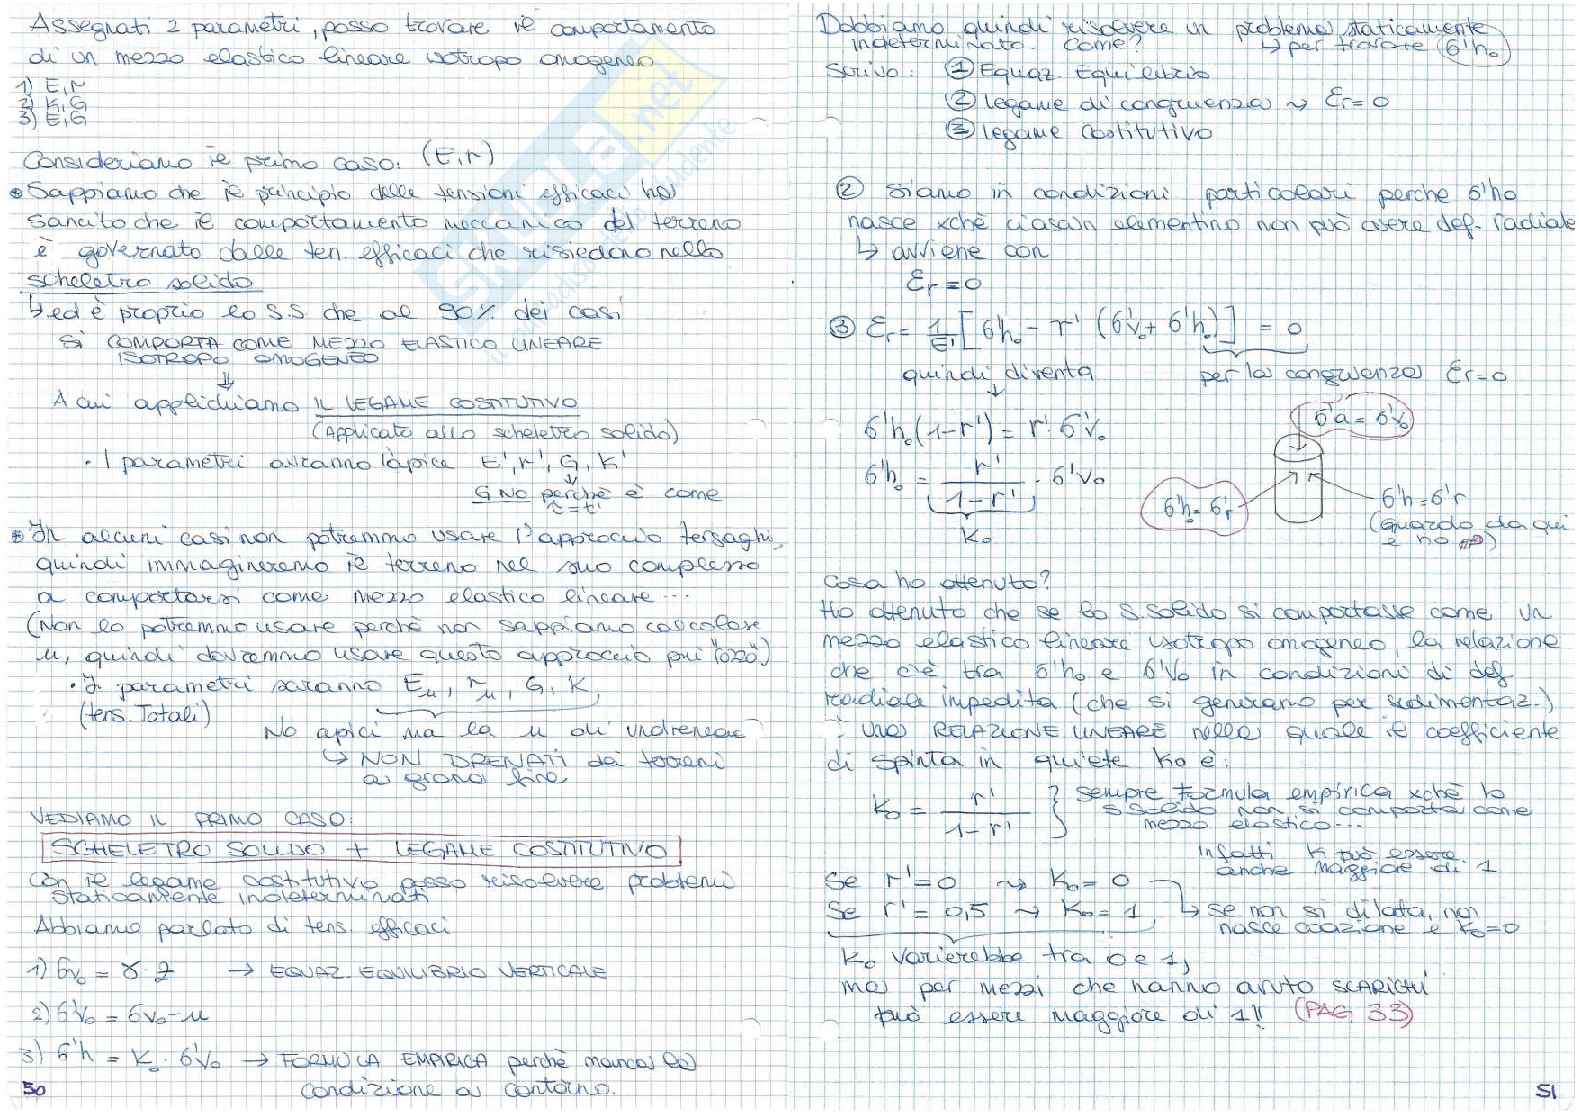 Assegnati 2 parametri, posso trovare il comportamento
di un mezzo elastico lineare isotropo omogeneo
1) E, r
2) K, G
3) E, G
Consideriamo il primo caso: (E, r)
• Sappiamo che il principio delle tensioni efficaci ha
sancito che il comportamento meccanico del terreno
è governato dalle ten. efficaci che risiedono nello
scheletro solido
↳ ed è proprio lo S.S che al 90% dei casi
SI COMPORTA COME MEZZO ELASTICO LINEARE
ISOTROPO OMOGENEO
⇓
A cui applichiamo IL LEGAME COSTITUTIVO
(Applicato allo scheletro solido)
• I parametri avranno l'apice E', r', G, K'
G NO perchè è come
τ = τ'
• In alcuni casi non potremmo usare l'approccio terzaghi,
quindi immagineremo il terreno nel suo complesso
a comportarsi come mezzo elastico lineare...
(Non lo potremmo usare perchè non sappiamo calcolare
u, quindi dovremmo usare questo approccio più "rozzo")
• I parametri saranno Eu, ru, G, K,
(tens. Totali)
No apici ma la u di undrained
↳ NON DRENATI dei terreni
a grana fine
VEDIAMO IL PRIMO CASO:
SCHELETRO SOLIDO + LEGAME COSTITUTIVO
Con il legame costitutivo posso risolvere problemi
staticamente indeterminati
Abbiamo parlato di tens. efficaci
1) σv₀ = γ · z → EQUAZ. EQUILIBRIO VERTICALE
2) σ'v₀ = σv₀ - u
3) σ'h = K₀ · σ'v₀ → FORMULA EMPIRICA perchè manca la
condizione al contorno.
50
Dobbiamo quindi risolvere un problema staticamente
indeterminato. Come? ↳ per trovare σ'h₀
Scrivo: ① Equaz. Equilibrio
② legame di congruenza ⇝ εr = 0
③ legame costitutivo
② Siamo in condizioni particolari perchè σ'h₀
nasce xchè ciascun elementino non può avere def. radiale
↳ avviene con
εr = 0
③ εr = 1/E' [σ'h₀ - r' (σ'v₀ + σ'h₀)] = 0
quindi diventa per la congruenza εr = 0
↓
σ'h₀ (1 - r') = r' · σ'v₀
σ'a = σ'v₀
σ'h₀ = r'/(1 - r') · σ'v₀
K₀
σ'h₀ = σ'r
σ'h = σ'r
(guardo da qui
e ho)
Cosa ho ottenuto?
Ho ottenuto che se lo S.solido si comportasse come un
mezzo elastico lineare isotropo omogeneo, la relazione
che c'è tra σ'h₀ e σ'v₀ in condizioni di def
radiale impedita (che si generano per sedimentaz.)
: una RELAZIONE LINEARE nella quale il coefficiente
di spinta in quiete K₀ è:
K₀ = r'/(1 - r') } sempre formula empirica xchè lo
S.solido non si comporta come
mezzo elastico...
Infatti K può essere
anche maggiore di 1
Se r' = 0 ⇝ K₀ = 0
Se r' = 0,5 ⇝ K₀ = 1 ↳ se non si dilata, non
nasce coazione e K₀ = 0
K₀ varierebbe tra 0 e 1,
ma per mezzi che hanno avuto SCARICHI
può essere maggiore di 1!! (PAG. 33)
51